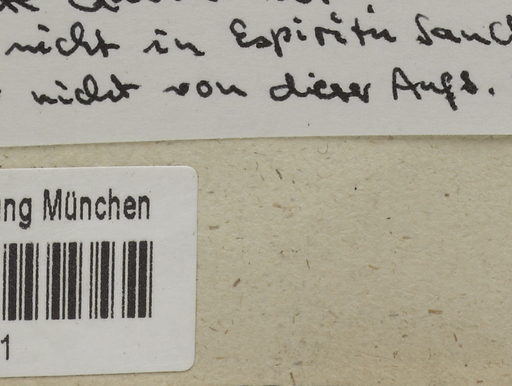 nicht in Espiritu Sanc
nicht von dieser Aufs.
ung München
1